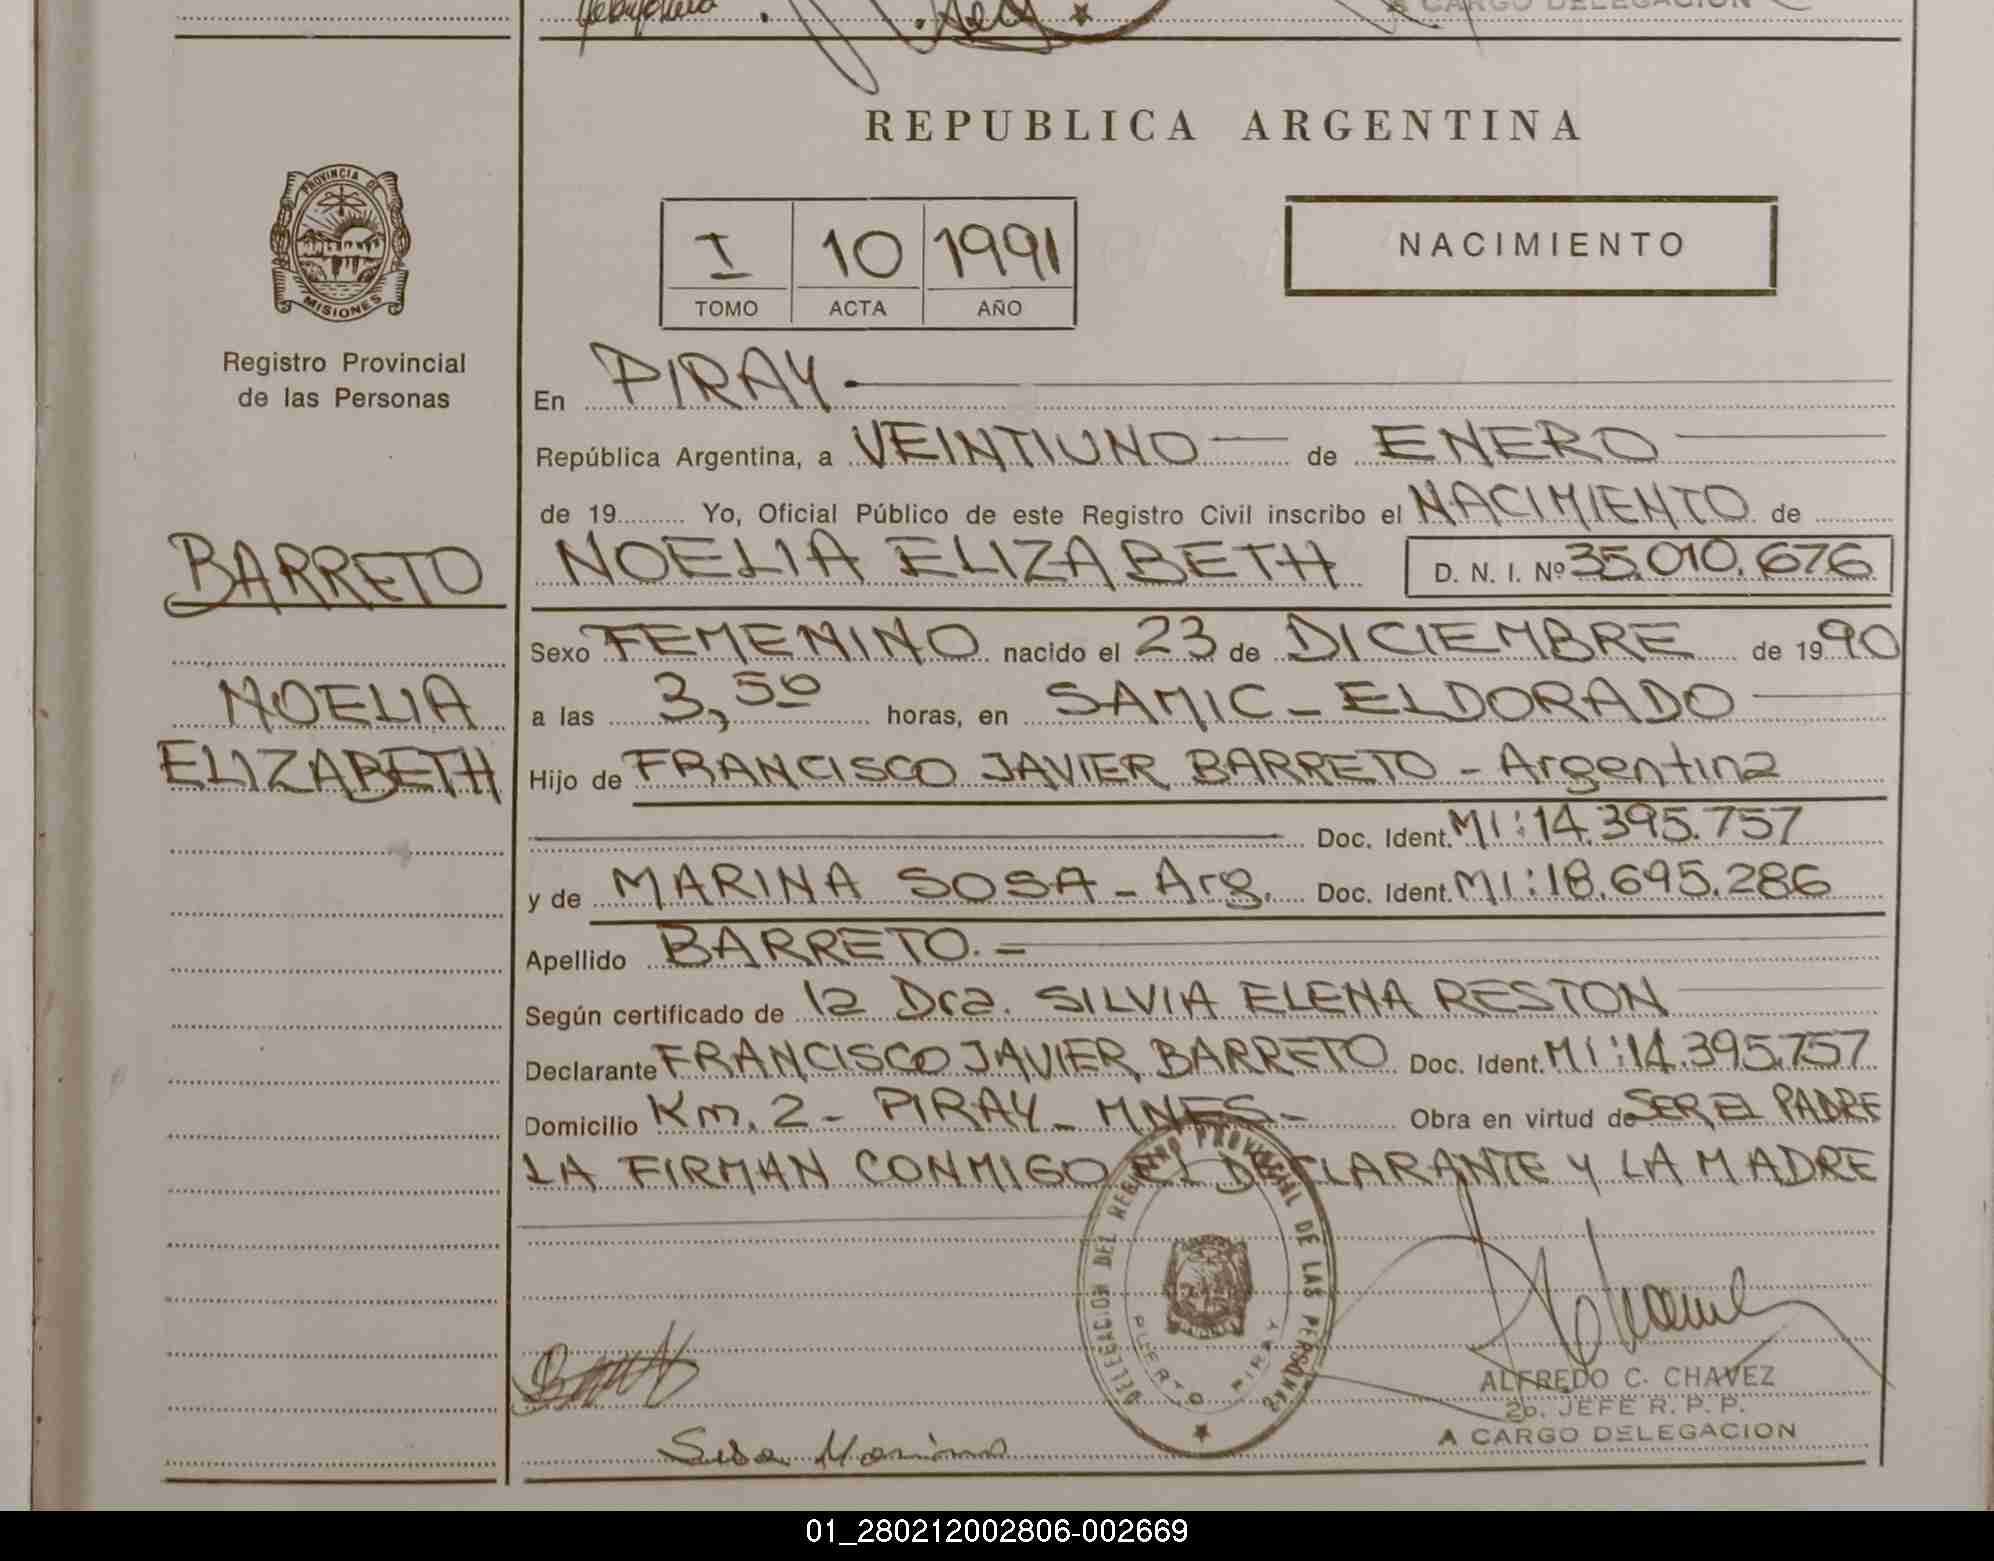 A CARGO DELEGACION
REPUBLICA ARGENTINA
PROVINCIA DE
MISIONES
I 10 1991
TOMO ACTA AÑO
NACIMIENTO
Registro Provincial
de las Personas
En PIRAY
República Argentina, a VEINTIUNO de ENERO
de 19 Yo, Oficial Público de este Registro Civil inscribo el NACIMIENTO de
BARRETO
NOELIA ELIZABETH D. N. I. Nº 35.010.676
Sexo FEMENINO nacido el 23 de DICIEMBRE de 1990
NOELIA
a las 3,50 horas, en SAMIC - ELDORADO
ELIZABETH
Hijo de FRANCISCO JAVIER BARRETO - Argentina
Doc. Ident. MI: 14.395.757
y de MARINA SOSA - Arg. Doc. Ident. MI: 18.695.286
Apellido BARRETO. -
Según certificado de la Dra. SILVIA ELENA RESTON
Declarante FRANCISCO JAVIER BARRETO Doc. Ident. MI: 14.395.757
Domicilio Km. 2 - PIRAY - MNES - Obra en virtud de SER EL PADRE
LA FIRMAN CONMIGO EL DECLARANTE Y LA MADRE
DELEGACION DEL REGISTRO PROVINCIAL DE LAS PERSONAS
PUERTO PIRAY
ALFREDO C. CHAVEZ
2o. JEFE R. P. P.
A CARGO DELEGACION
Sosa Marina
01_280212002806-002669